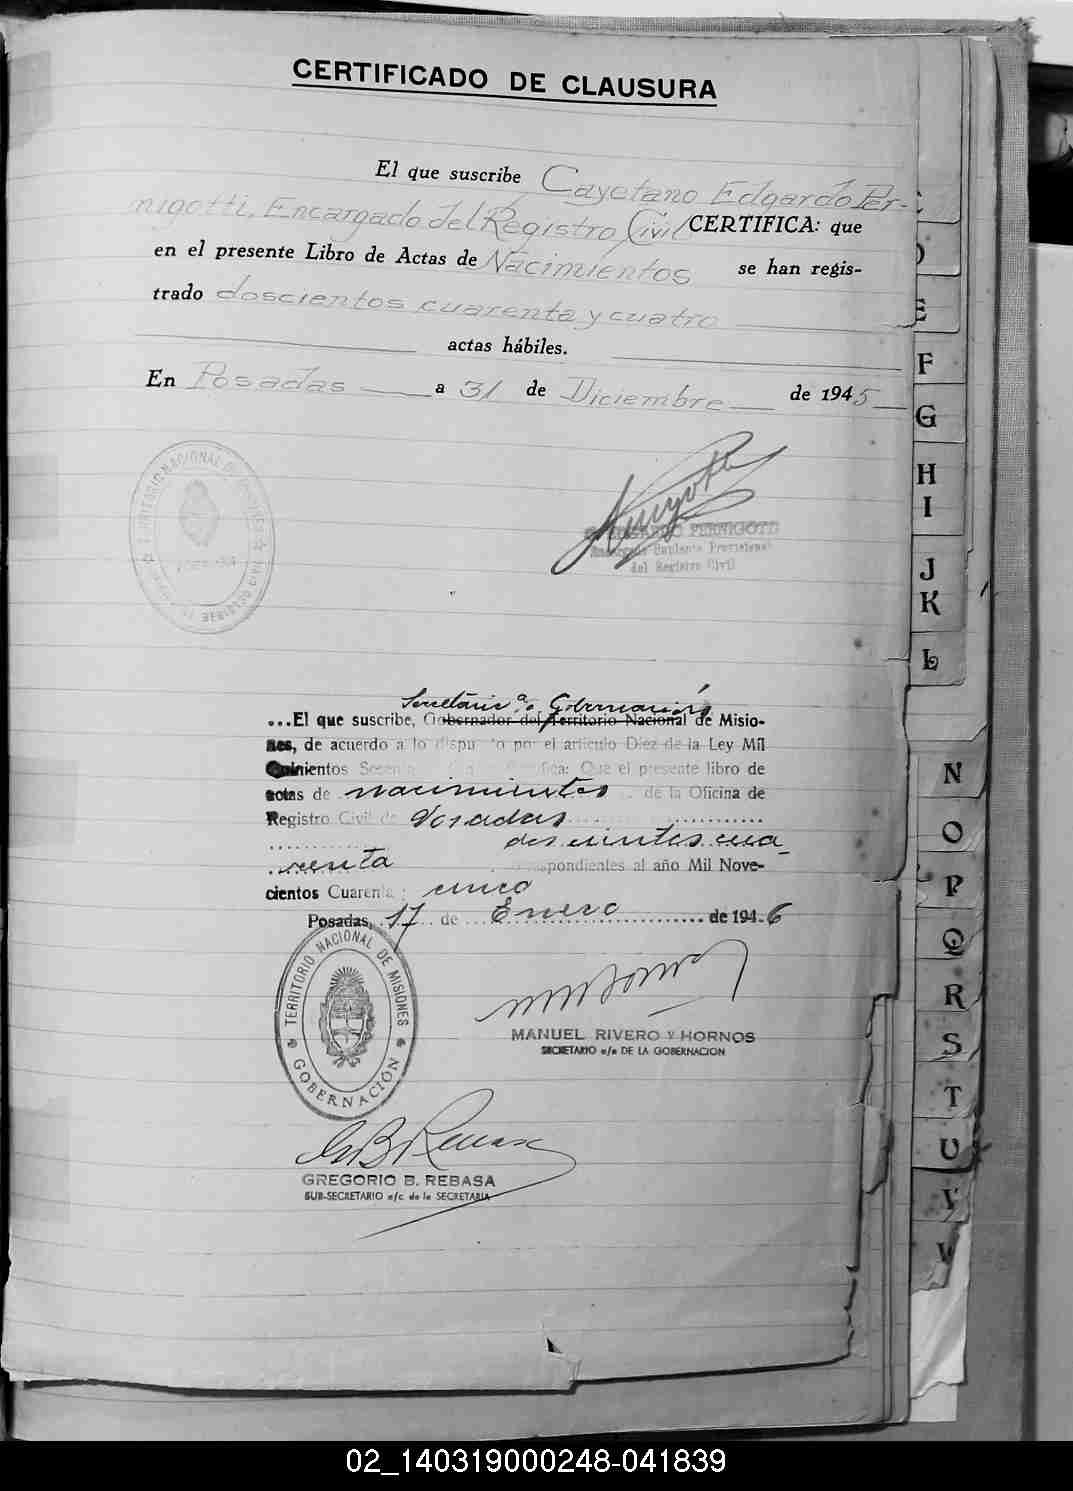 CERTIFICADO DE CLAUSURA
El que suscribe Cayetano Edgardo Per-
nigotti, Encargado del Registro Civil CERTIFICA: que
en el presente Libro de Actas de Nacimientos se han regis-
trado doscientos cuarenta y cuatro
actas hábiles.
En Posadas a 31 de Diciembre de 1945
TERRITORIO NACIONAL DE MISIONES
EDGARDO PERNIGOTTI
Encargado Suplente Provisional
del Registro Civil
Secretario a/c Gobernación
...El que suscribe, Gobernador del Territorio Nacional de Misio-
nes, de acuerdo a lo dispuesto por el artículo Diez de la Ley Mil
Quinientos Sesenta Certifica: Que el presente libro de
actas de nacimientos de la Oficina de
Registro Civil de Posadas
doscientos cua-
renta correspondientes al año Mil Nove-
cientos Cuarenta y cinco
Posadas, 17 de Enero de 1946
TERRITORIO NACIONAL DE MISIONES
GOBERNACIÓN
MANUEL RIVERO Y HORNOS
SECRETARIO a/c DE LA GOBERNACION
GREGORIO B. REBASA
SUB-SECRETARIO a/c de la SECRETARIA
E
F
G
H
I
J
K
L
N
O
P
Q
R
S
T
U
V
W
02_140319000248-041839